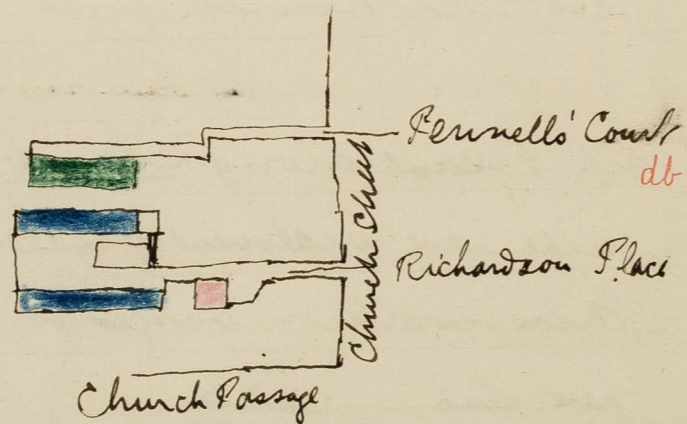 Fennells' Court
db
Church
Richardson Place
Church Passage